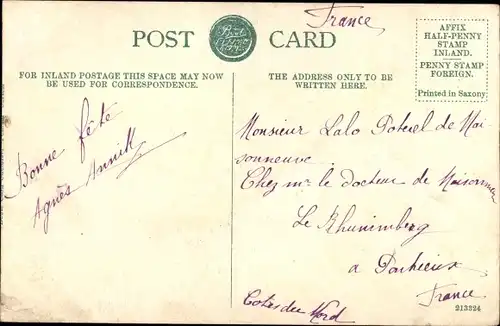 France
POST CARD
AFFIX
HALF-PENNY
STAMP
INLAND.
PENNY STAMP
FOREIGN.
Printed in Saxony
FOR INLAND POSTAGE THIS SPACE MAY NOW
BE USED FOR CORRESPONDENCE.
THE ADDRESS ONLY TO BE
WRITTEN HERE.
Bonne fête
Agnès Annik
Monsieur Lalo Poterel de Mai
sonneuve
Chez mr le docteur de Maisonneuve
Le
a
France
Cotes du Nord
213224